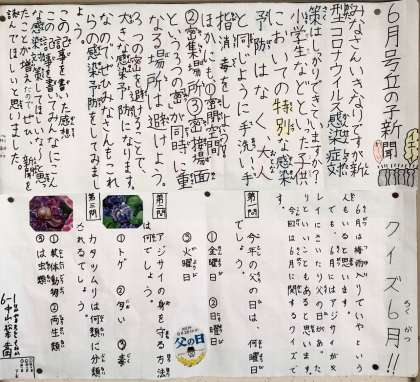 6月号立の子新聞
みなさんいきなりですが新
型コロナウイルス感染症対
策はしっかりできていますか?
小学生などといった子供
においての特別な感染
予防はなく、大人
と同じように手洗い、手
指消毒をしましょう。
ほかにも、①密閉空間
②密集場所③密接場面
という3つの密が同時に重
なる場所は避けよう。
3つの密を避けることで、
大きな感染予防になります。
なのでぜひみなさんもこれ
らの感染予防をしてみまし
ょう。
この記事を書いた感想
この記事を書いてみんなにこん
な感染対策
クイズ6月!!
6月は梅雨入りでいやという
人もいると思います。
でも、6月にはアジサイがキ
レイにさいたり父の日があった
りといいこともあると思います。
今回は6月に関するクイズで
す。
第一問
今年の父の日は、何曜日
でしょう。
①金曜日 ②日曜日
③火曜日
父の日
第二問
アジサイの身を守る方法
は何でしょう。
①トゲ ②タい ③毒
第三問
カタツムリは何類に分類
されるでしょう。
①軟体動物 ②両生類
③は虫類